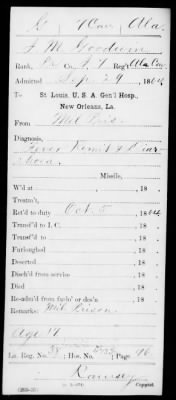 G 7 Cav Ala.
F. M. Goodwin
Rank, Co. Reg't Ala Cav.
Admitted Sep. 29, 1864
To St. Louis U. S. A. Gen'l Hosp.,
New Orleans, La.
From Mil Pris.
Diagnosis,
Fever Remit & Diar-
rhoea.
Missile,
W'd at , 18
Treatm't,
Ret'd to duty Oct. 5, 1864
Transf'd to I. C. , 18
Transf'd to , 18
Furloughed , 18
Deserted , 18
Disch'd from service , 18
Died , 18
Re-adm'd from furlo' or des'n , 18
Remarks: Mil Prison.
Age 19
La. Reg. No. ; Hos. No. ; Page
Copyist.